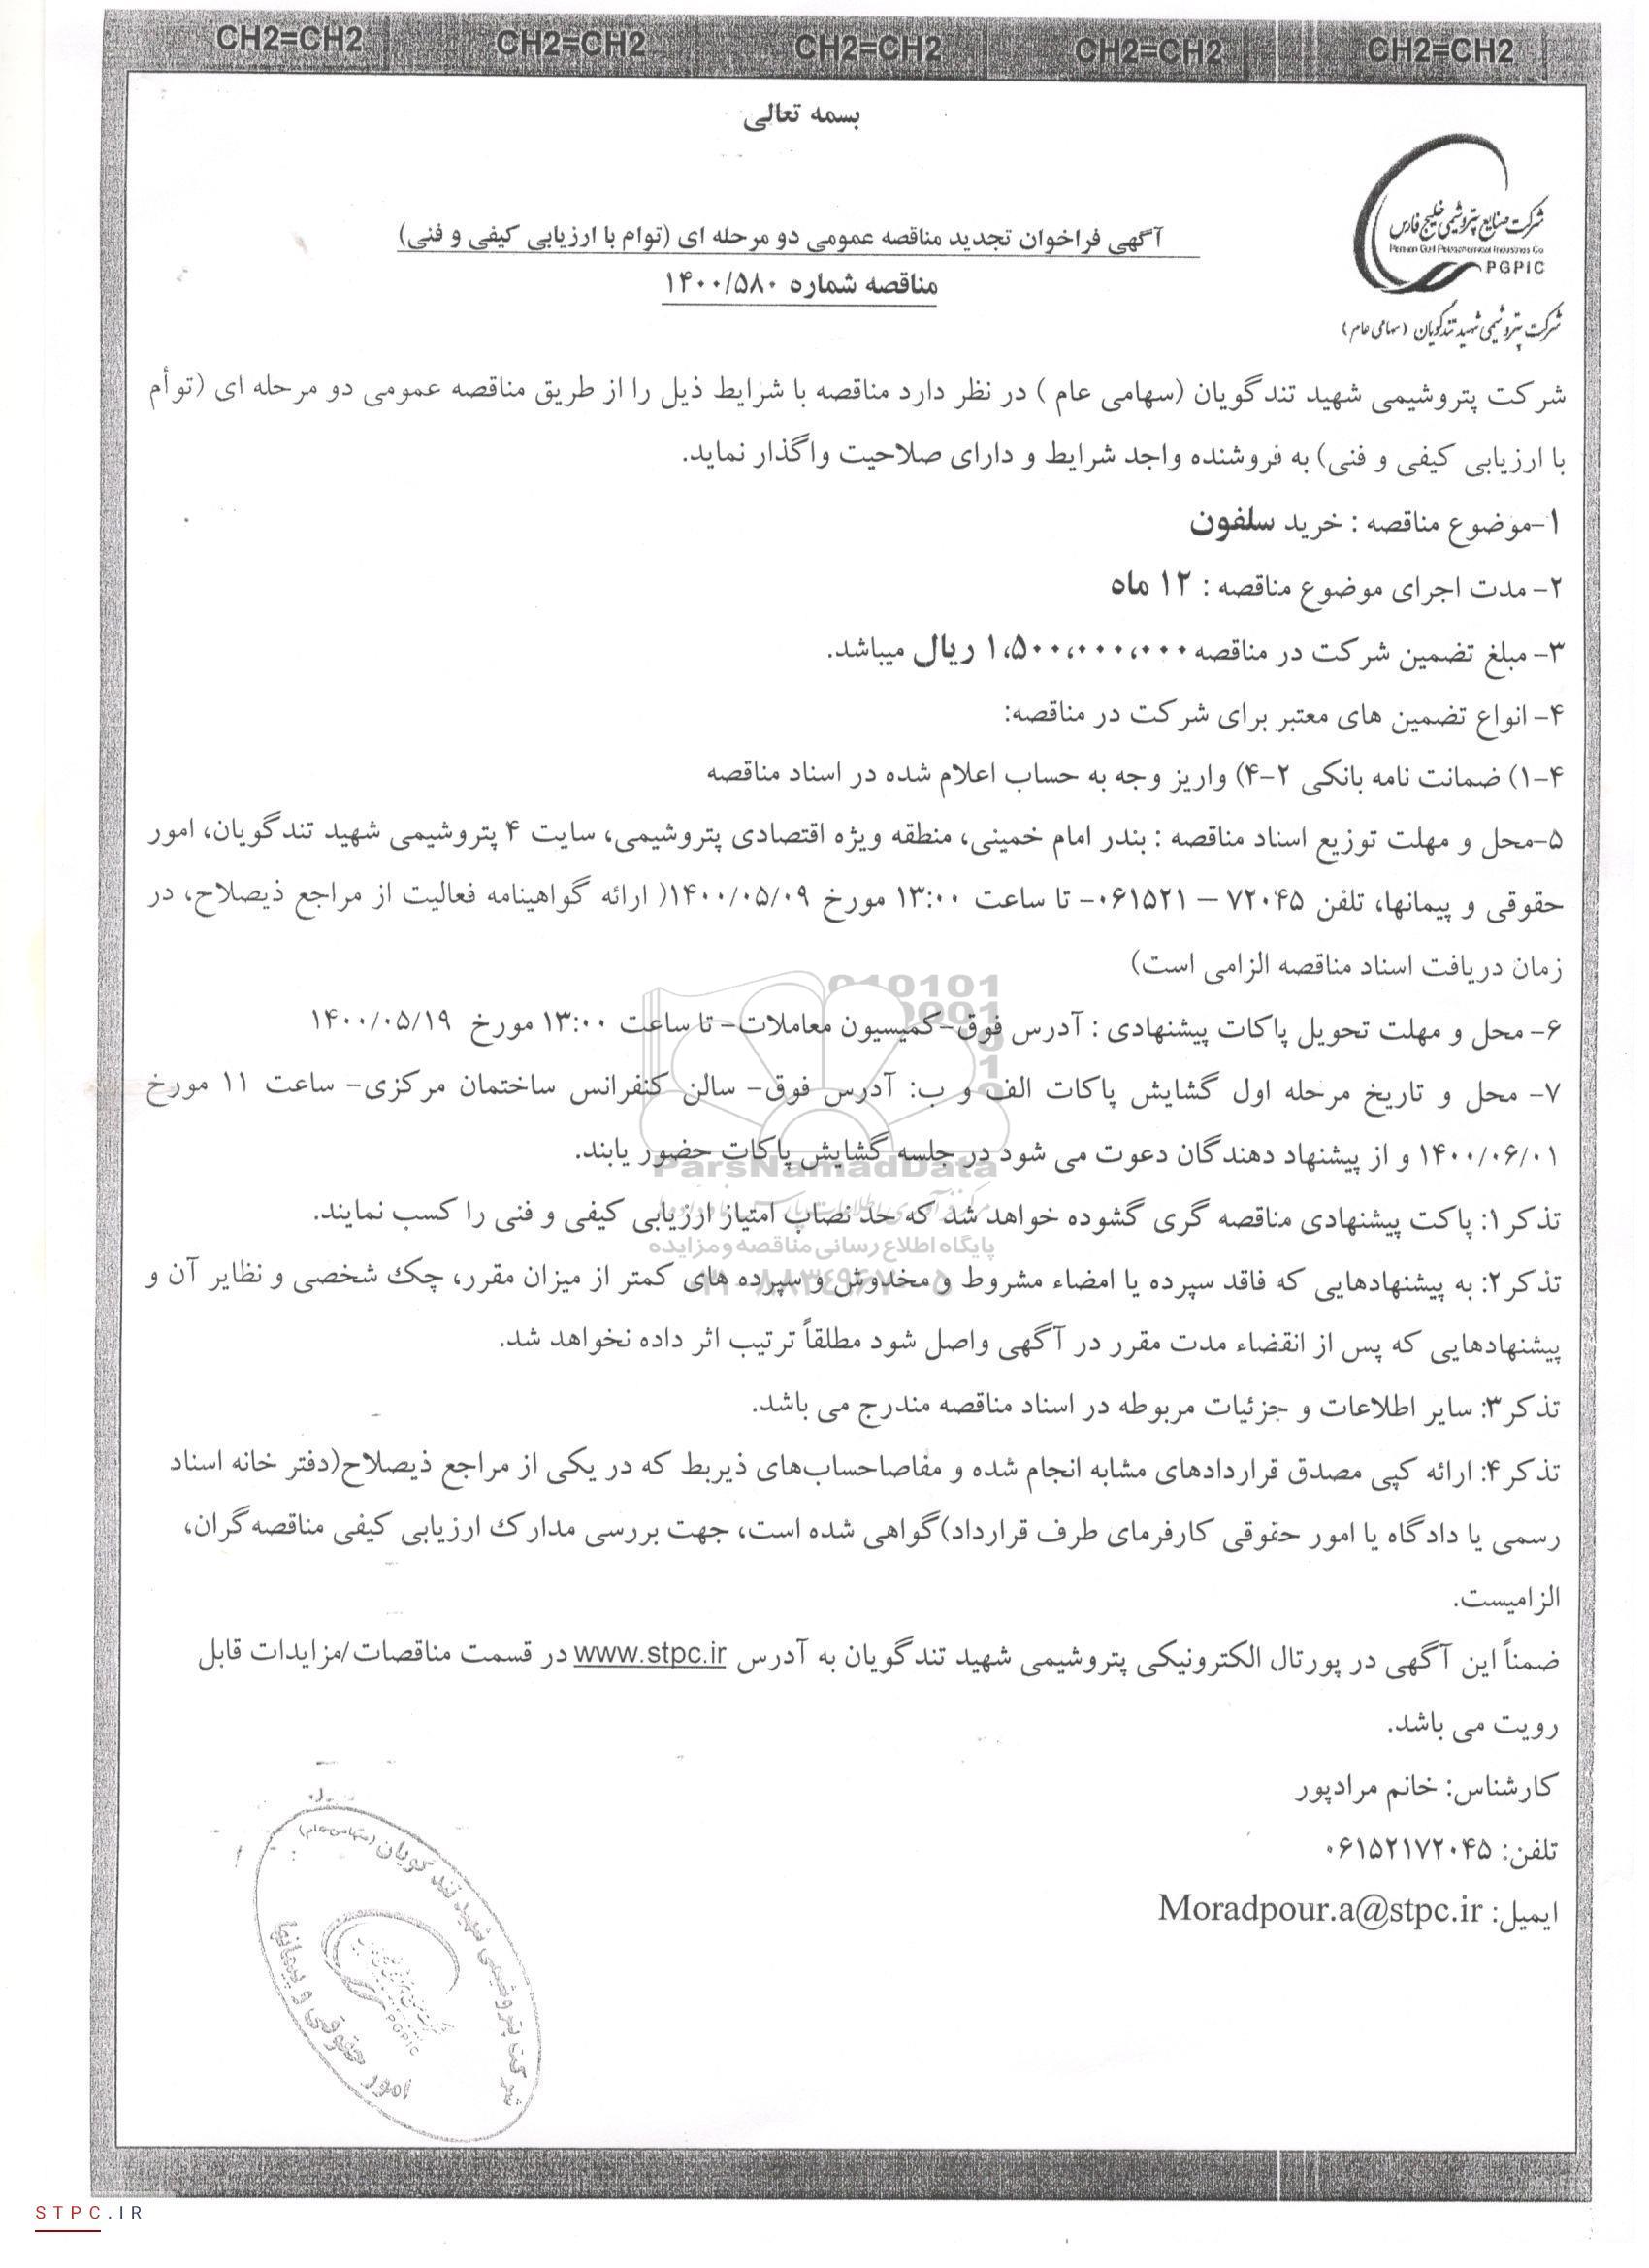 CH2=CH2 CH2=CH2 CH2=CH2 CH2=CH2 CH2=CH2
بسمه تعالی
شرکت صنایع پتروشیمی خلیج فارس
Persian Gulf Petrochemical Industries Co
PGPIC
شرکت پتروشیمی شهید تندگویان (سهامی عام)
آگهی فراخوان تجدید مناقصه عمومی دو مرحله ای (توام با ارزیابی کیفی و فنی)
مناقصه شماره ۱۴۰۰/۵۸۰
شرکت پتروشیمی شهید تندگویان (سهامی عام ) در نظر دارد مناقصه با شرایط ذیل را از طریق مناقصه عمومی دو مرحله ای (توأم
با ارزیابی کیفی و فنی) به فروشنده واجد شرایط و دارای صلاحیت واگذار نماید.
۱-موضوع مناقصه : خرید سلفون
۲- مدت اجرای موضوع مناقصه : ۱۲ ماه
۳- مبلغ تضمین شرکت در مناقصه ۱،۵۰۰،۰۰۰،۰۰۰ ریال میباشد.
۴- انواع تضمین های معتبر برای شرکت در مناقصه:
۴-۱) ضمانت نامه بانکی ۲-۴) واریز وجه به حساب اعلام شده در اسناد مناقصه
۵-محل و مهلت توزیع اسناد مناقصه : بندر امام خمینی، منطقه ویژه اقتصادی پتروشیمی، سایت ۴ پتروشیمی شهید تندگویان، امور
حقوقی و پیمانها، تلفن ۷۲۰۴۵ – ۰۶۱۵۲۱- تا ساعت ۱۳:۰۰ مورخ ۱۴۰۰/۰۵/۰۹( ارائه گواهینامه فعالیت از مراجع ذیصلاح، در
زمان دریافت اسناد مناقصه الزامی است)
۶- محل و مهلت تحویل پاکات پیشنهادی : آدرس فوق-کمیسیون معاملات- تا ساعت ۱۳:۰۰ مورخ ۱۴۰۰/۰۵/۱۹
۷- محل و تاریخ مرحله اول گشایش پاکات الف و ب: آدرس فوق- سالن کنفرانس ساختمان مرکزی- ساعت ۱۱ مورخ
۱۴۰۰/۰۶/۰۱ و از پیشنهاد دهندگان دعوت می شود در جلسه گشایش پاکات حضور یابند.
ParsNamadData
تذکر۱: پاکت پیشنهادی مناقصه گری گشوده خواهد شد که حد نصاب امتیاز ارزیابی کیفی و فنی را کسب نمایند.
پایگاه اطلاع رسانی مناقصه و مزایده
تذکر۲: به پیشنهادهایی که فاقد سپرده یا امضاء مشروط و مخدوش و سپرده های کمتر از میزان مقرر، چک شخصی و نظایر آن و
پیشنهادهایی که پس از انقضاء مدت مقرر در آگهی واصل شود مطلقاً ترتیب اثر داده نخواهد شد.
تذکر۳: سایر اطلاعات و جزئیات مربوطه در اسناد مناقصه مندرج می باشد.
تذکر۴: ارائه کپی مصدق قراردادهای مشابه انجام شده و مفاصاحساب‌های ذیربط که در یکی از مراجع ذیصلاح(دفتر خانه اسناد
رسمی یا دادگاه یا امور حقوقی کارفرمای طرف قرارداد)گواهی شده است، جهت بررسی مدارک ارزیابی کیفی مناقصه‌گران،
الزامیست.
ضمناً این آگهی در پورتال الکترونیکی پتروشیمی شهید تندگویان به آدرس www.stpc.ir در قسمت مناقصات/مزایدات قابل
رویت می باشد.
کارشناس: خانم مرادپور
تلفن: ۰۶۱۵۲۱۷۲۰۴۵
ایمیل: Moradpour.a@stpc.ir
شرکت پتروشیمی شهید تندگویان (سهامی عام)
PGPIC
امور حقوقی و پیمانها
STPC.IR